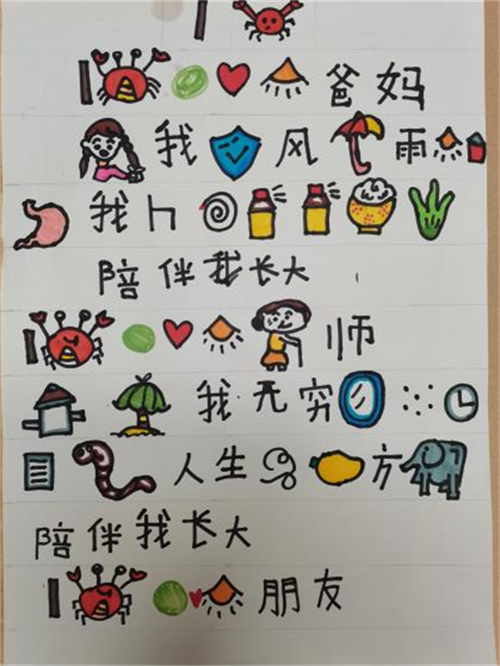 爸妈
我 风 雨
我 h
陪伴我长大
师
我无穷
人生 方
陪伴我长大
朋友